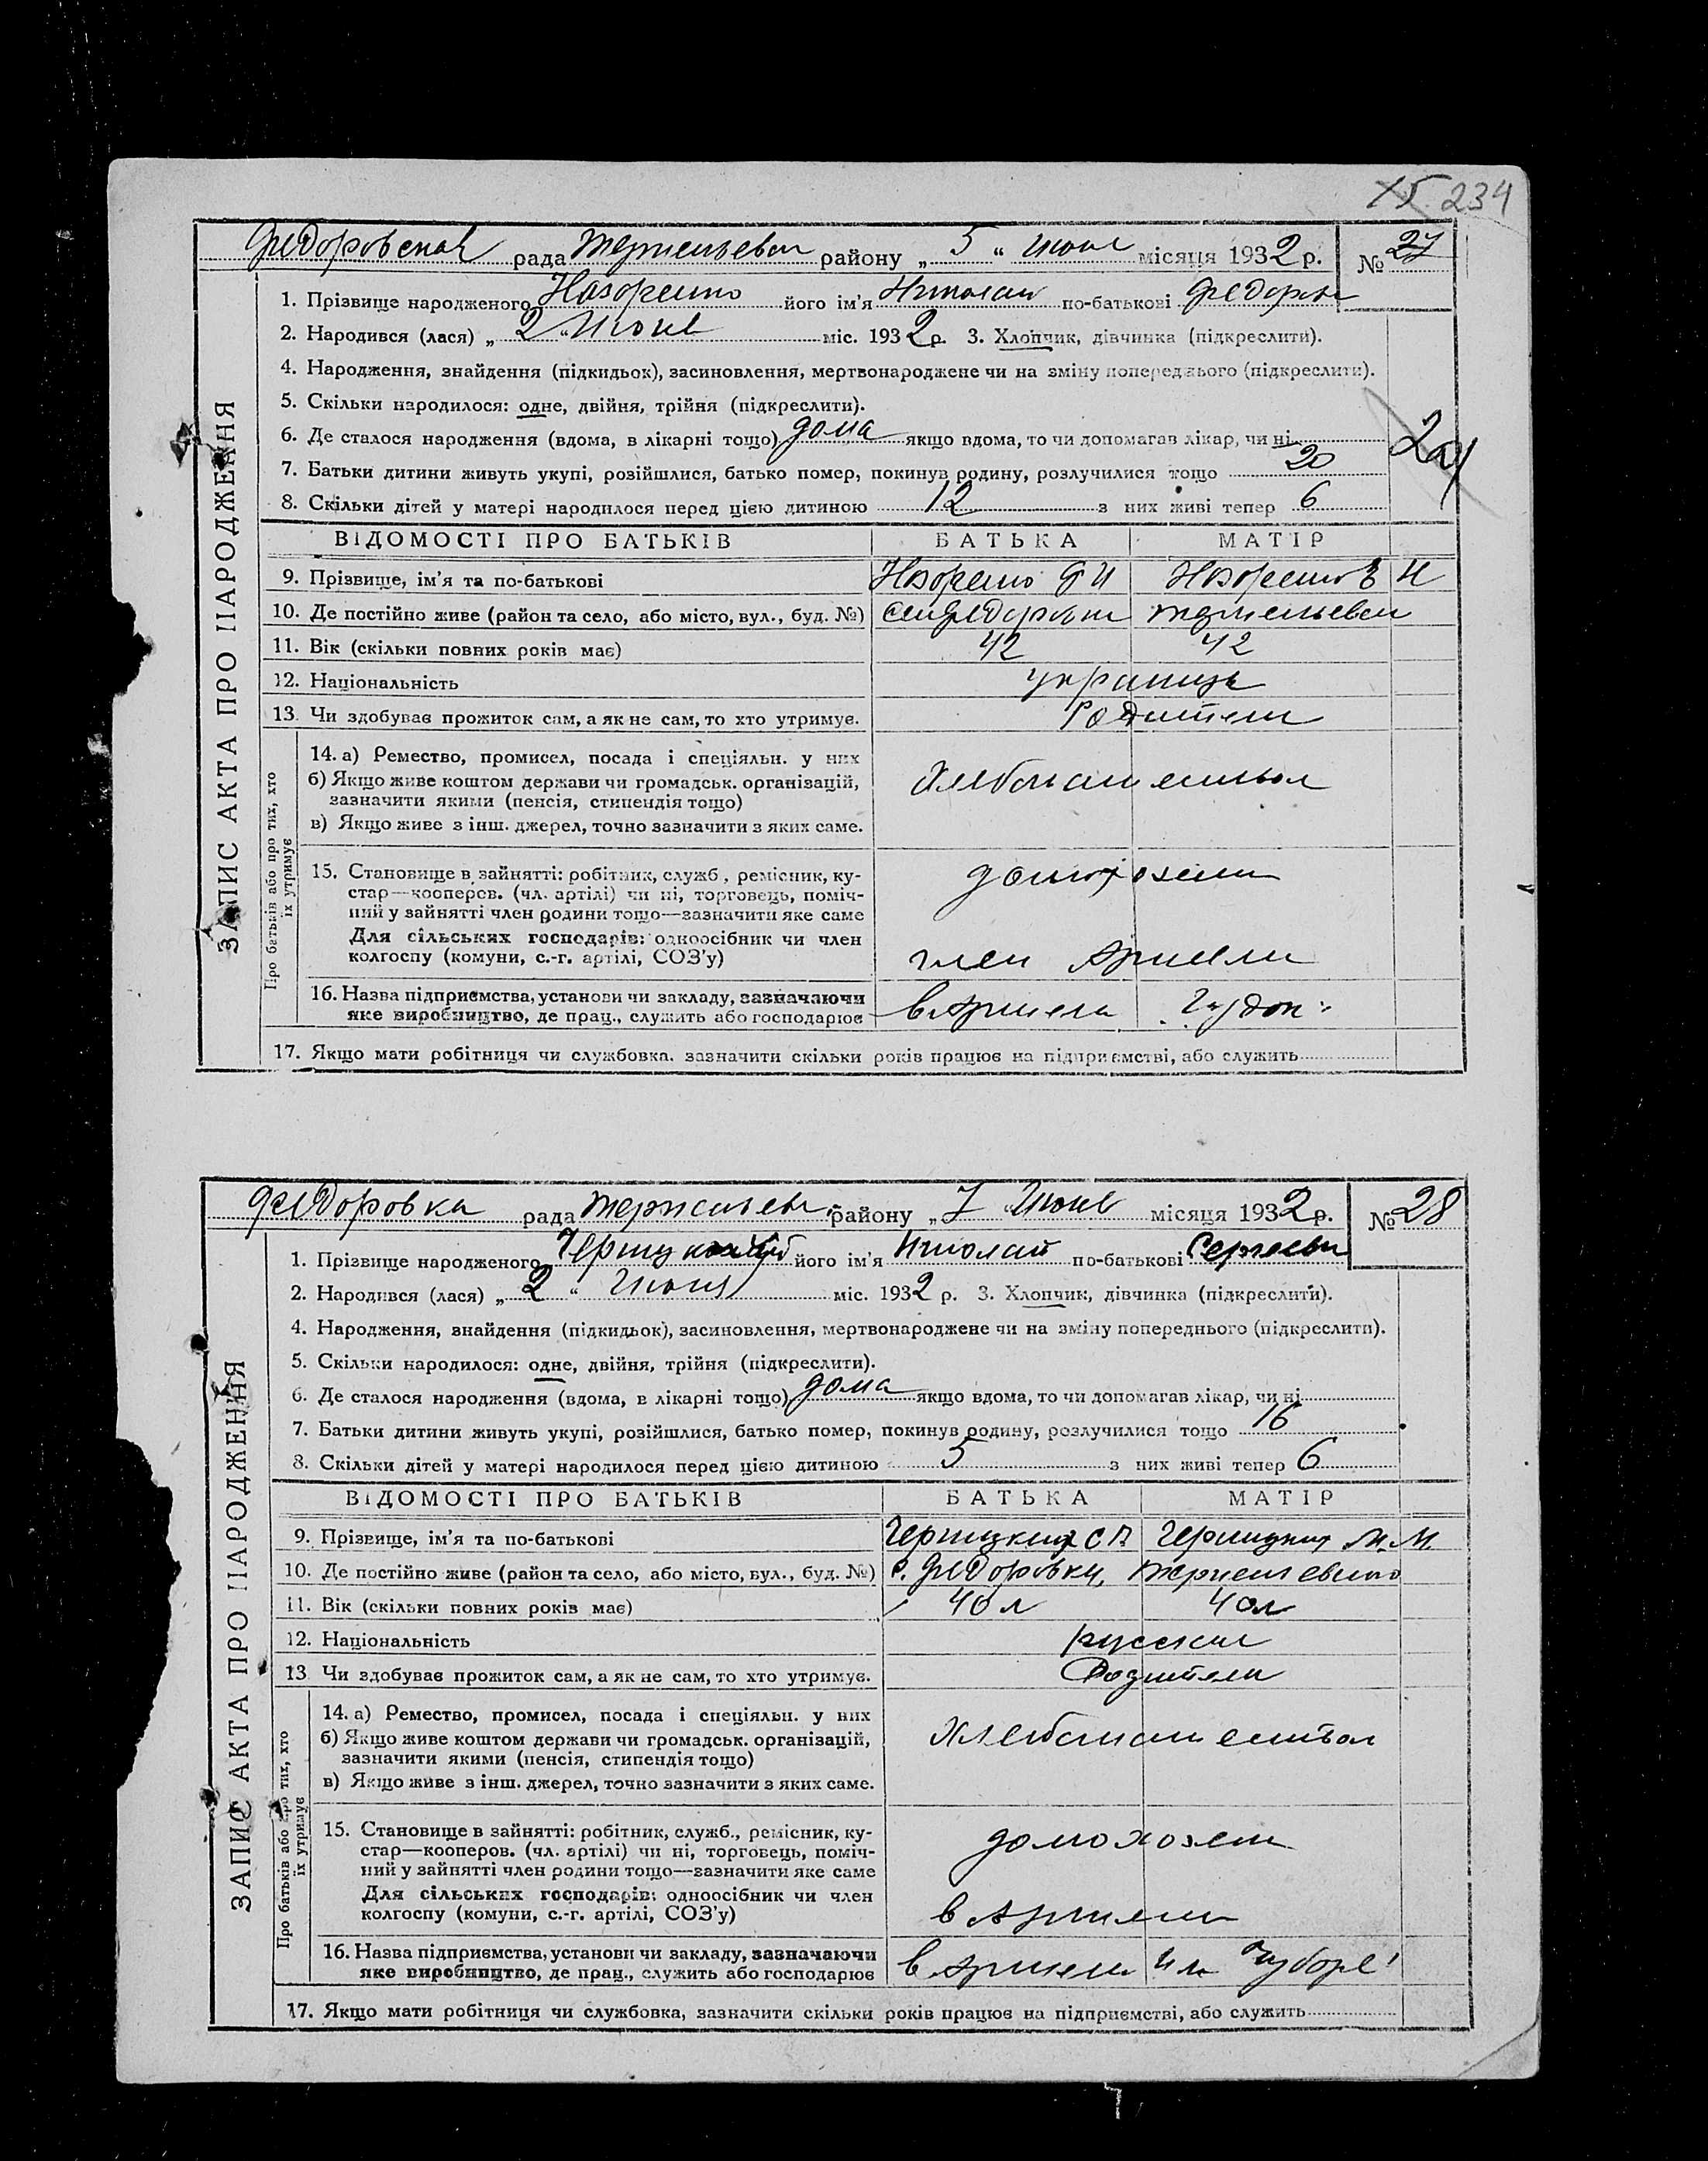 234
рада району „ 5 “ місяця 1932 р. № 27
1. Прізвище народженого його ім'я Николай по-батькові
2. Народився (лася) „ 2 “ міс. 1932 р. 3. Хлопчик, дівчинка (підкреслити).
4. Народження, знайдення (підкидьок), засиновлення, мертвонароджене чи на зміну попереднього (підкреслити).
5. Скільки народилося: одне, двійня, трійня (підкреслити).
6. Де сталося народження (вдома, в лікарні тощо) дома якщо вдома, то чи допомагав лікар, чи ні
7. Батьки дитини живуть укупі, розійшлися, батько помер, покинув родину, розлучилися тощо 20
8. Скільки дітей у матері народилося перед цією дитиною 12 з них живі тепер 6
ЗАПИС АКТА ПРО НАРОДЖЕННЯ
ВІДОМОСТІ ПРО БАТЬКІВ БАТЬКА МАТІР
9. Прізвище, ім'я та по-батькові
10. Де постійно живе (район та село, або місто, вул., буд. №)
11. Вік (скільки повних років має) 42 42
12. Національність
13. Чи здобуває прожиток сам, а як не сам, то хто утримує. Родители
Про батьків або про тих, хто їх утримує
14. а) Ремество, промисел, посада і спеціяльн. у них
б) Якщо живе коштом держави чи громадськ. організацій,
зазначити якими (пенсія, стипендія тощо)
в) Якщо живе з інш. джерел, точно зазначити з яких саме.
15. Становище в зайнятті: робітник, служб., ремісник, ку-
стар—кооперов. (чл. артілі) чи ні, торговець, поміч-
ний у зайнятті член родини тощо—зазначити яке саме
Для сільських господарів: одноосібник чи член
колгоспу (комуни, с.-г. артілі, СОЗ'у) член Артели
16. Назва підприємства, установи чи закладу, зазначаючи
яке виробництво, де прац., служить або господарює
17. Якщо мати робітниця чи службовка, зазначити скільки років працює на підприємстві, або служить
Федоровка рада району „ 7 “ місяця 1932 р. № 28
1. Прізвище народженого його ім'я Николай по-батькові
2. Народився (лася) „ 2 “ Июня міс. 1932 р. 3. Хлопчик, дівчинка (підкреслити).
4. Народження, знайдення (підкидьок), засиновлення, мертвонароджене чи на зміну попереднього (підкреслити).
5. Скільки народилося: одне, двійня, трійня (підкреслити).
6. Де сталося народження (вдома, в лікарні тощо) дома якщо вдома, то чи допомагав лікар, чи ні
7. Батьки дитини живуть укупі, розійшлися, батько помер, покинув родину, розлучилися тощо 16
8. Скільки дітей у матері народилося перед цією дитиною 5 з них живі тепер 6
ЗАПИС АКТА ПРО НАРОДЖЕННЯ
ВІДОМОСТІ ПРО БАТЬКІВ БАТЬКА МАТІР
9. Прізвище, ім'я та по-батькові
10. Де постійно живе (район та село, або місто, вул., буд. №)
11. Вік (скільки повних років має) 40 л 40 л
12. Національність
13. Чи здобуває прожиток сам, а як не сам, то хто утримує. Родители
Про батьків або про тих, хто їх утримує
14. а) Ремество, промисел, посада і спеціяльн. у них
б) Якщо живе коштом держави чи громадськ. організацій,
зазначити якими (пенсія, стипендія тощо)
в) Якщо живе з інш. джерел, точно зазначити з яких саме.
15. Становище в зайнятті: робітник, служб., ремісник, ку-
стар—кооперов. (чл. артілі) чи ні, торговець, поміч-
ний у зайнятті член родини тощо—зазначити яке саме
Для сільських господарів: одноосібник чи член
колгоспу (комуни, с.-г. артілі, СОЗ'у) в Артели
16. Назва підприємства, установи чи закладу, зазначаючи
яке виробництво, де прац., служить або господарює в Артели
17. Якщо мати робітниця чи службовка, зазначити скільки років працює на підприємстві, або служить